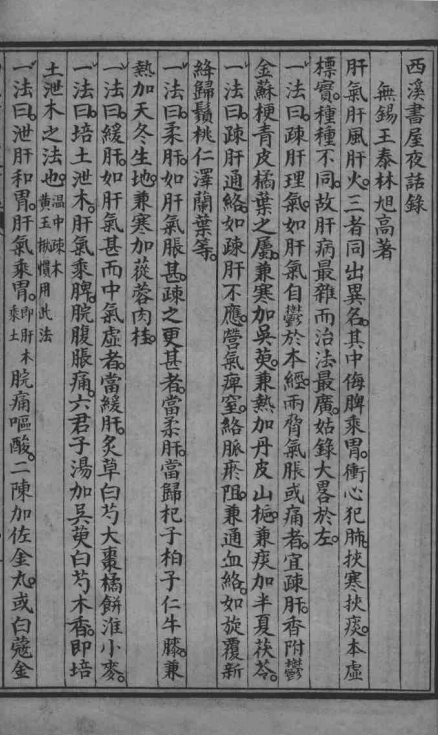 西溪書屋夜話錄
無錫王泰林旭高著
肝氣肝風肝火。三者同出異名。其中侮脾乘胃。衝心犯肺。挾寒挾痰。本虛
標實。種種不同。故肝病最雜而治法最廣。姑錄大畧於左。
一法曰。疎肝理氣。如肝氣自鬱於本經。兩脅氣脹或痛者。宜疎肝。香附鬱
金蘇梗青皮橘葉之屬。兼寒加吳萸。兼熱加丹皮山梔。兼痰加半夏茯苓。
一法曰。疎肝通絡。如疎肝不應。營氣痺窒。絡脈瘀阻。兼通血絡。如旋覆新
絳歸鬚桃仁澤蘭葉等。
一法曰。柔肝。如肝氣脹甚。疎之更甚者。當柔肝。當歸杞子柏子仁牛膝。兼
熱加天冬生地。兼寒加蓯蓉肉桂。
一法曰。緩肝。如肝氣甚而中氣虛者。當緩肝。炙草白芍大棗橘餅淮小麥。
一法曰。培土泄木。肝氣乘脾。脘腹脹痛。六君子湯加吳萸白芍木香。即培
土泄木之法也。溫中疎木黃玉楸慣用此法
一法曰。泄肝和胃。肝氣乘胃。即肝木乘土脘痛嘔酸。二陳加佐金丸。或白蔻金